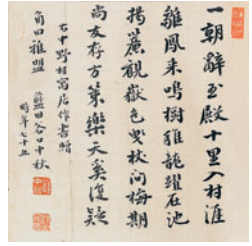 一朝辭玉殿十里入村涯
雛鳳来鳴樹龍躍在池
揭簾觀嶽色曳杖問梅期
尚友存方策樂天奚復疑
右中野村寓居作書贈
角田雅盟 藍田谷口中秋
時年七十五